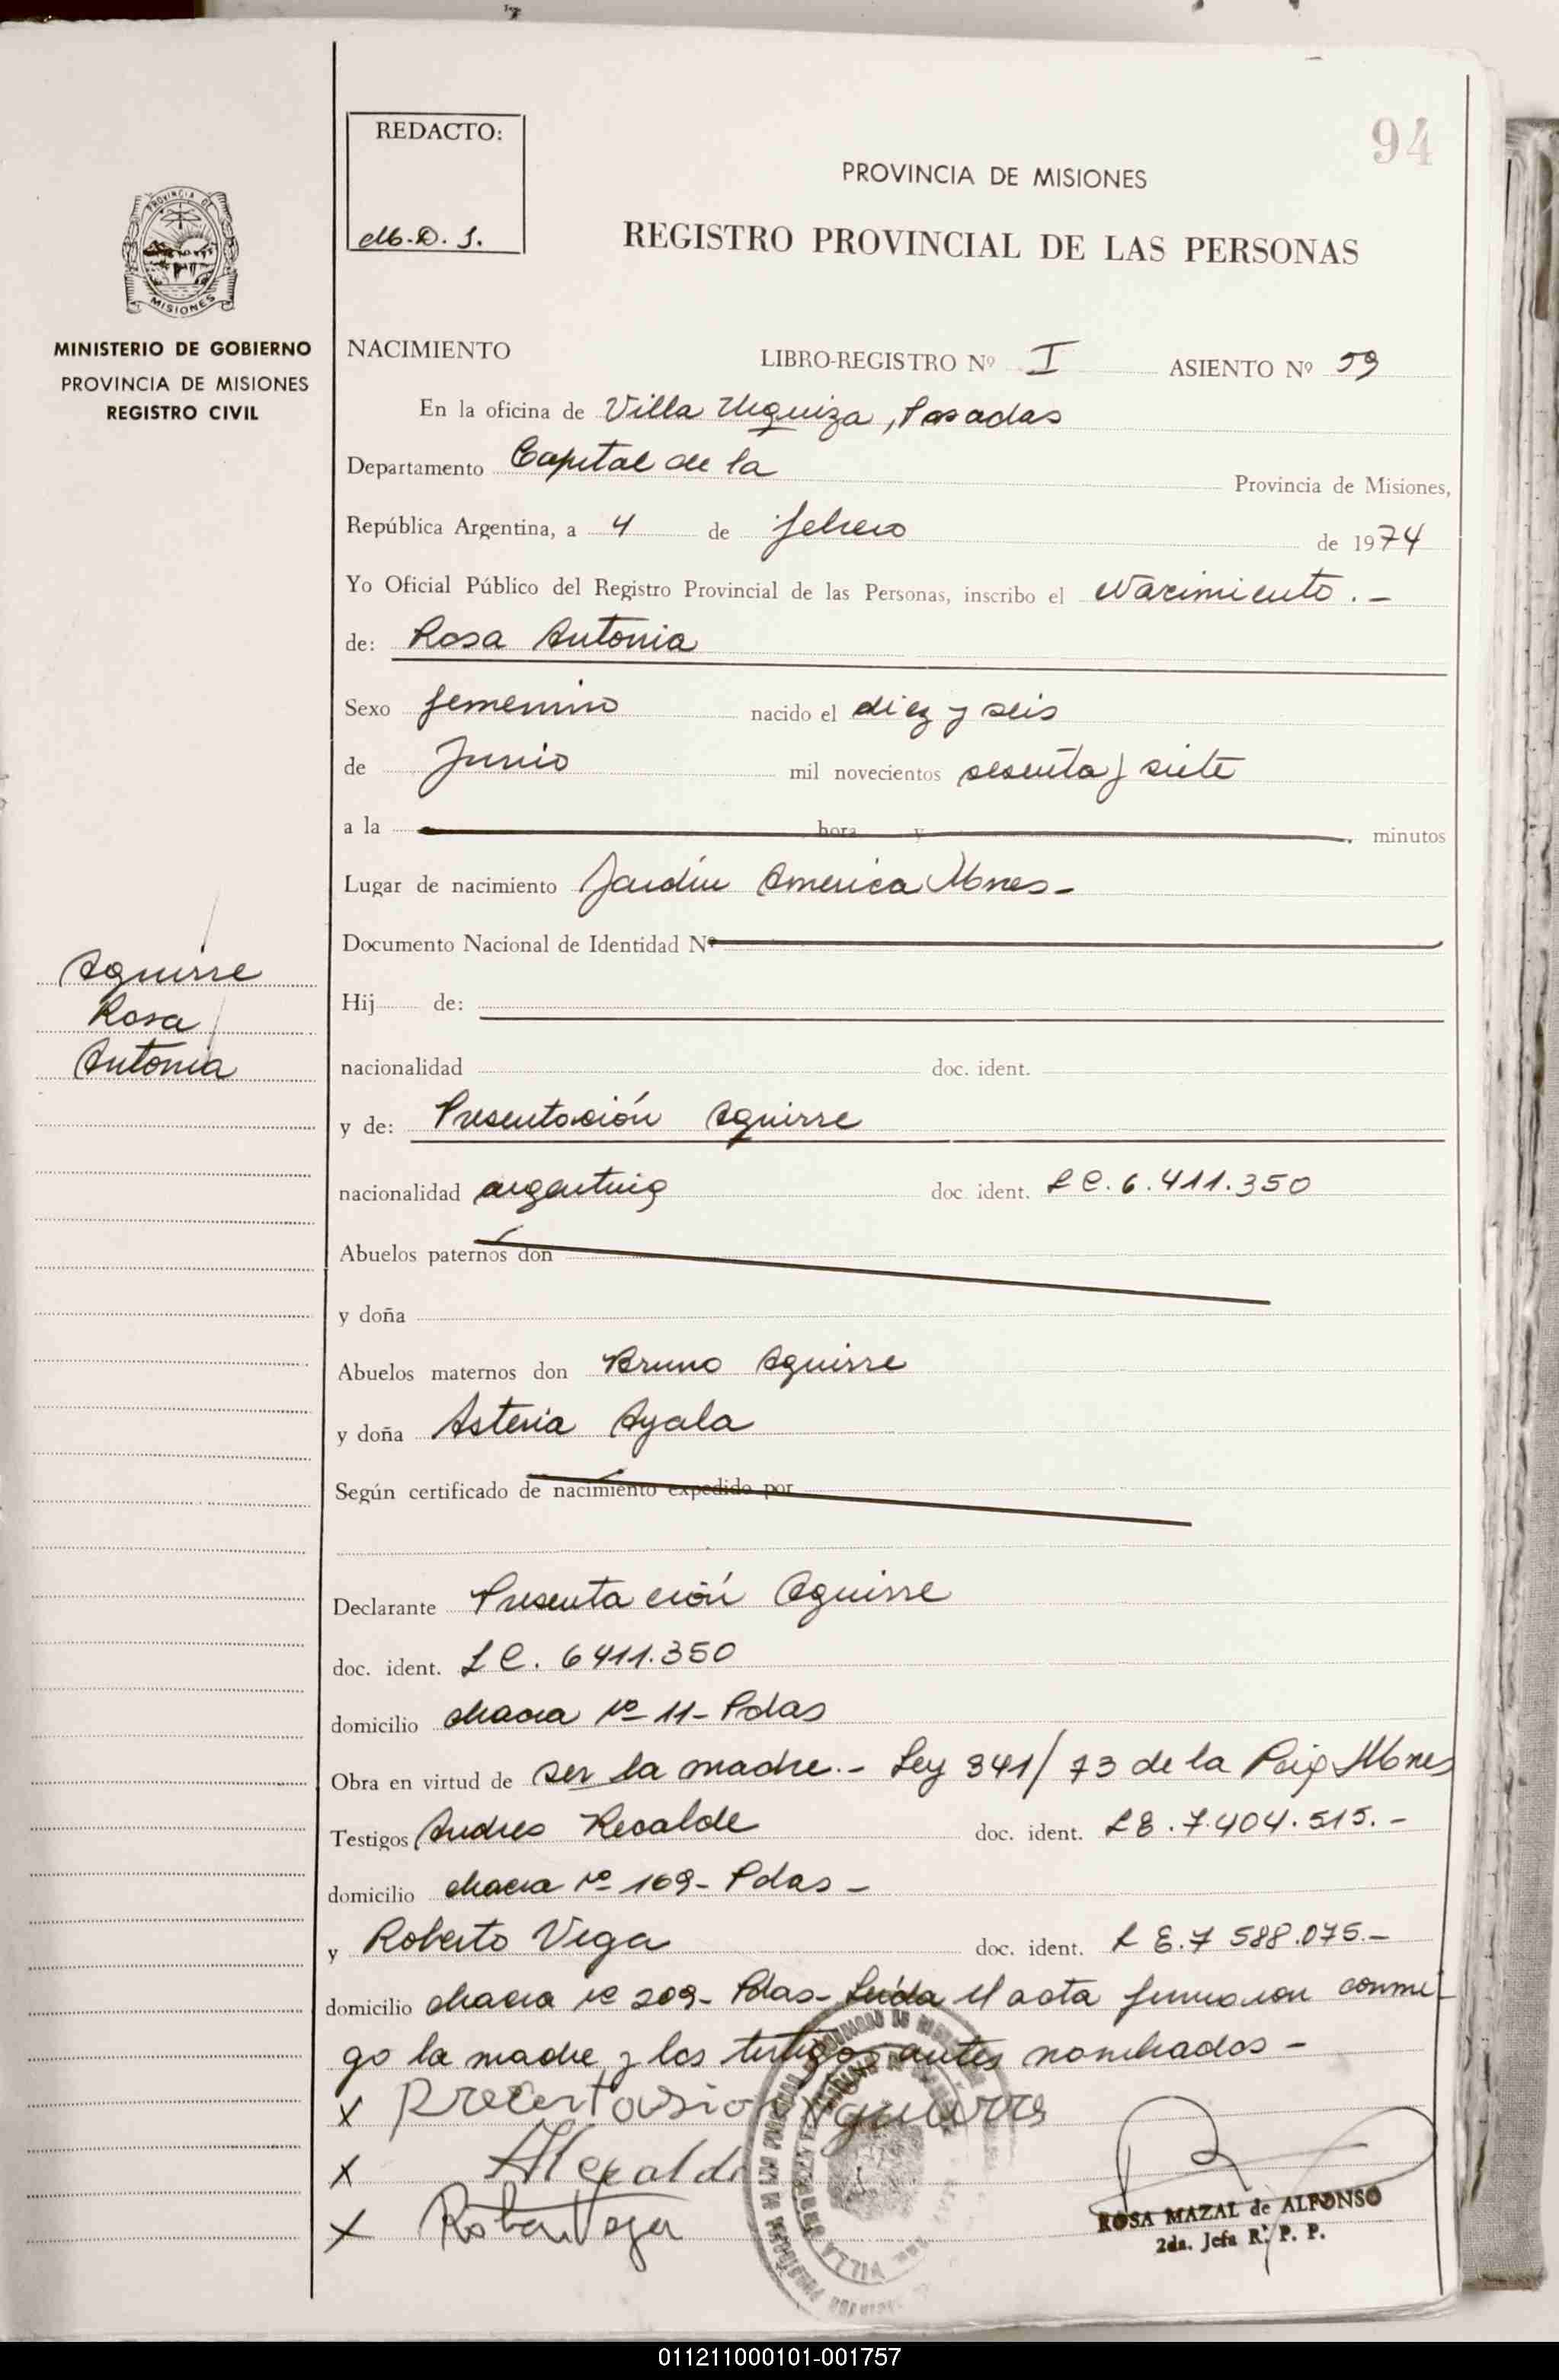 94
REDACTO:
M.D.S.
PROVINCIA DE MISIONES
REGISTRO PROVINCIAL DE LAS PERSONAS
PROVINCIA DE
MISIONES
MINISTERIO DE GOBIERNO
PROVINCIA DE MISIONES
REGISTRO CIVIL
NACIMIENTO LIBRO-REGISTRO Nº I ASIENTO Nº 59
En la oficina de Villa Urquiza, Posadas
Departamento Capital de la Provincia de Misiones,
República Argentina, a 4 de febrero de 1974
Yo Oficial Público del Registro Provincial de las Personas, inscribo el Nacimiento.-
de: Rosa Antonia
Sexo femenino nacido el diez y seis
de Junio mil novecientos sesenta y siete
a la hora y minutos
Lugar de nacimiento Jardín America Mnes-
Documento Nacional de Identidad Nº
Aguirre
Rosa
Antonia
Hij de:
nacionalidad doc. ident.
y de: Presentación Aguirre
nacionalidad argentina doc. ident. L C. 6.411.350
Abuelos paternos don
y doña
Abuelos maternos don Bruno Aguirre
y doña Asteria Ayala
Según certificado de nacimiento expedido por
Declarante Presentación Aguirre
doc. ident. L C. 6411.350
domicilio chacra nº 11- Pdas
Obra en virtud de ser la madre.- Ley 341/73 de la Mnes
Testigos Andres Recalde doc. ident. L E. 7.404.515.-
domicilio chacra nº 169- Pdas-
y Roberto Vega doc. ident. L E. 7 588.075.-
domicilio chacra nº 209- Pdas- Leída el acta firmaron conmi-
go la madre y los testigos antes nombrados-
x
x
x
VILLA
ROSA MAZAL de ALFONSO
2da. Jefa R. P. P.
011211000101-001757